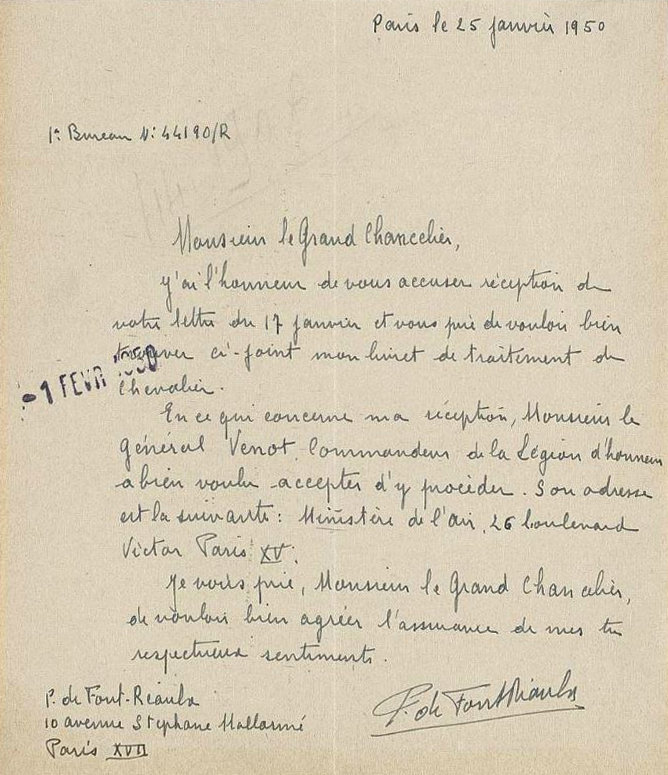 Paris le 25 janvier 1950
1er Bureau N: 44190/R
Monsieur le Grand Chancelier,
j'ai l'honneur de vous accuser réception de
votre lettre du 17 janvier et vous prie de vouloir bien
trouver ci-joint mon livret de traitement de
Chevalier.
-1 FEVR 1950
En ce qui concerne ma réception, Monsieur le
général Venot, Commandeur de la Légion d'honneur
a bien voulu accepter d'y procéder. Son adresse
est la suivante: Ministère de l'air, 26 boulevard
Victor Paris XV.
Je vous prie, Monsieur le Grand Chancelier,
de vouloir bien agréer l'assurance de mes très
respectueux sentiments.
P. de Font-Réaulx
10 avenue Stephane Mallarmé
Paris XVII
P. de Font Réaulx